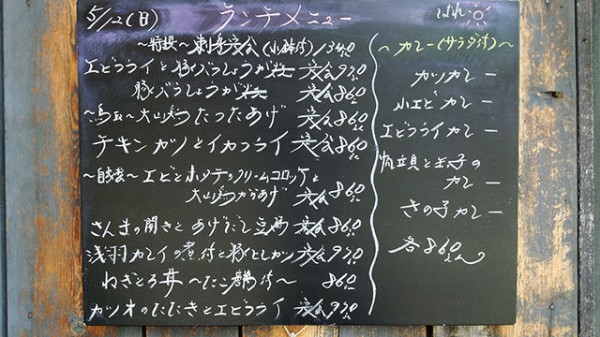 5/12(日) ランチメニュー はれ
～特撰～ 刺身定食(小鉢付)1340
エビフライと豚バラしょうが焼 定食970
豚バラしょうが焼 定食860
大山鶏たつたあげ 定食860
チキンカツとイカフライ 定食860
～自家～エビとホタテのクリームコロッケと
大山鶏からあげ 定食860
さんまの開きとあげだし豆腐 定食860
浅羽カレイの煮付と豚ヒレカツ 定食970
ねぎとろ丼 860
カツオのたたきとエビフライ 定食970
～カレー(サラダ付)～
カツカレー ー
小エビカレー ー
エビフライカレー ー
帆立貝と玉子の
カレー ー
きの子カレー ー
各860